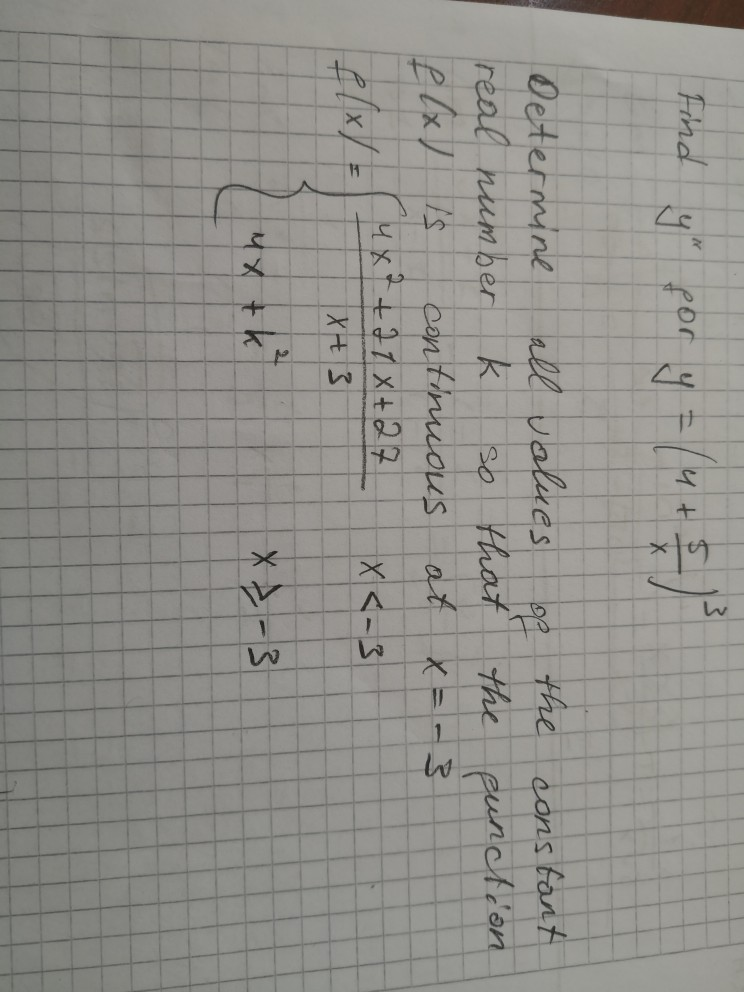 Find y" for y = (4 + 5/x)³
Determine all values of the constant
real number k so that the function
f(x) is continuous at x = -3
f(x) = { (4x² + 21x + 27)/(x + 3)    x < -3
4x + k²    x ≥ -3